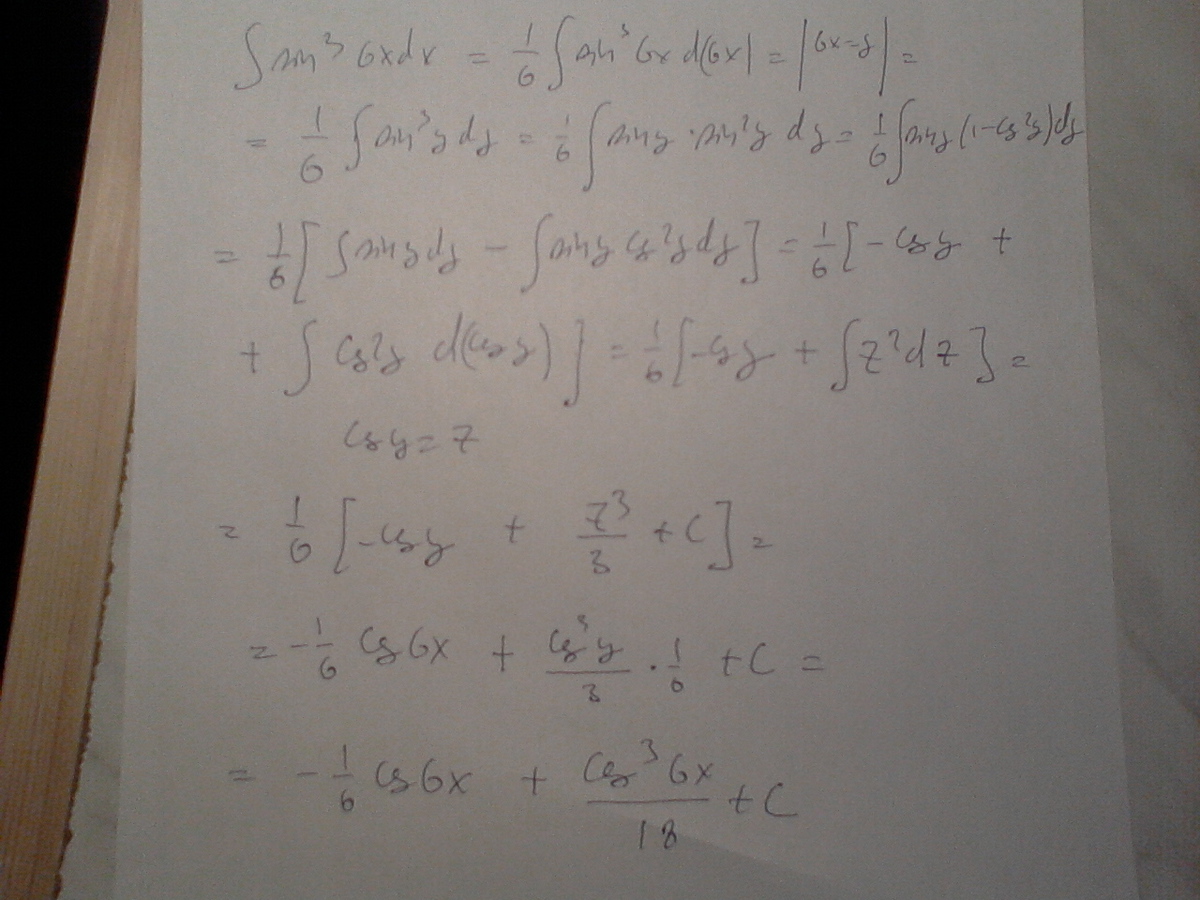 ∫ sin³ 6x dx = 1/6 ∫ sin³ 6x d(6x) = |6x=y| =
= 1/6 ∫ sin³y dy = 1/6 ∫ sin y · sin²y dy = 1/6 ∫ sin y (1-cos²y) dy
= 1/6 [ ∫ sin y dy - ∫ sin y cos²y dy ] = 1/6 [ -cos y +
+ ∫ cos²y d(cos y) ] = 1/6 [ -cos y + ∫ z² dz ] =
cos y = z
= 1/6 [ -cos y + z³/3 + C ] =
= -1/6 cos 6x + cos³y/3 · 1/6 + C =
= -1/6 cos 6x + cos³ 6x/18 + C